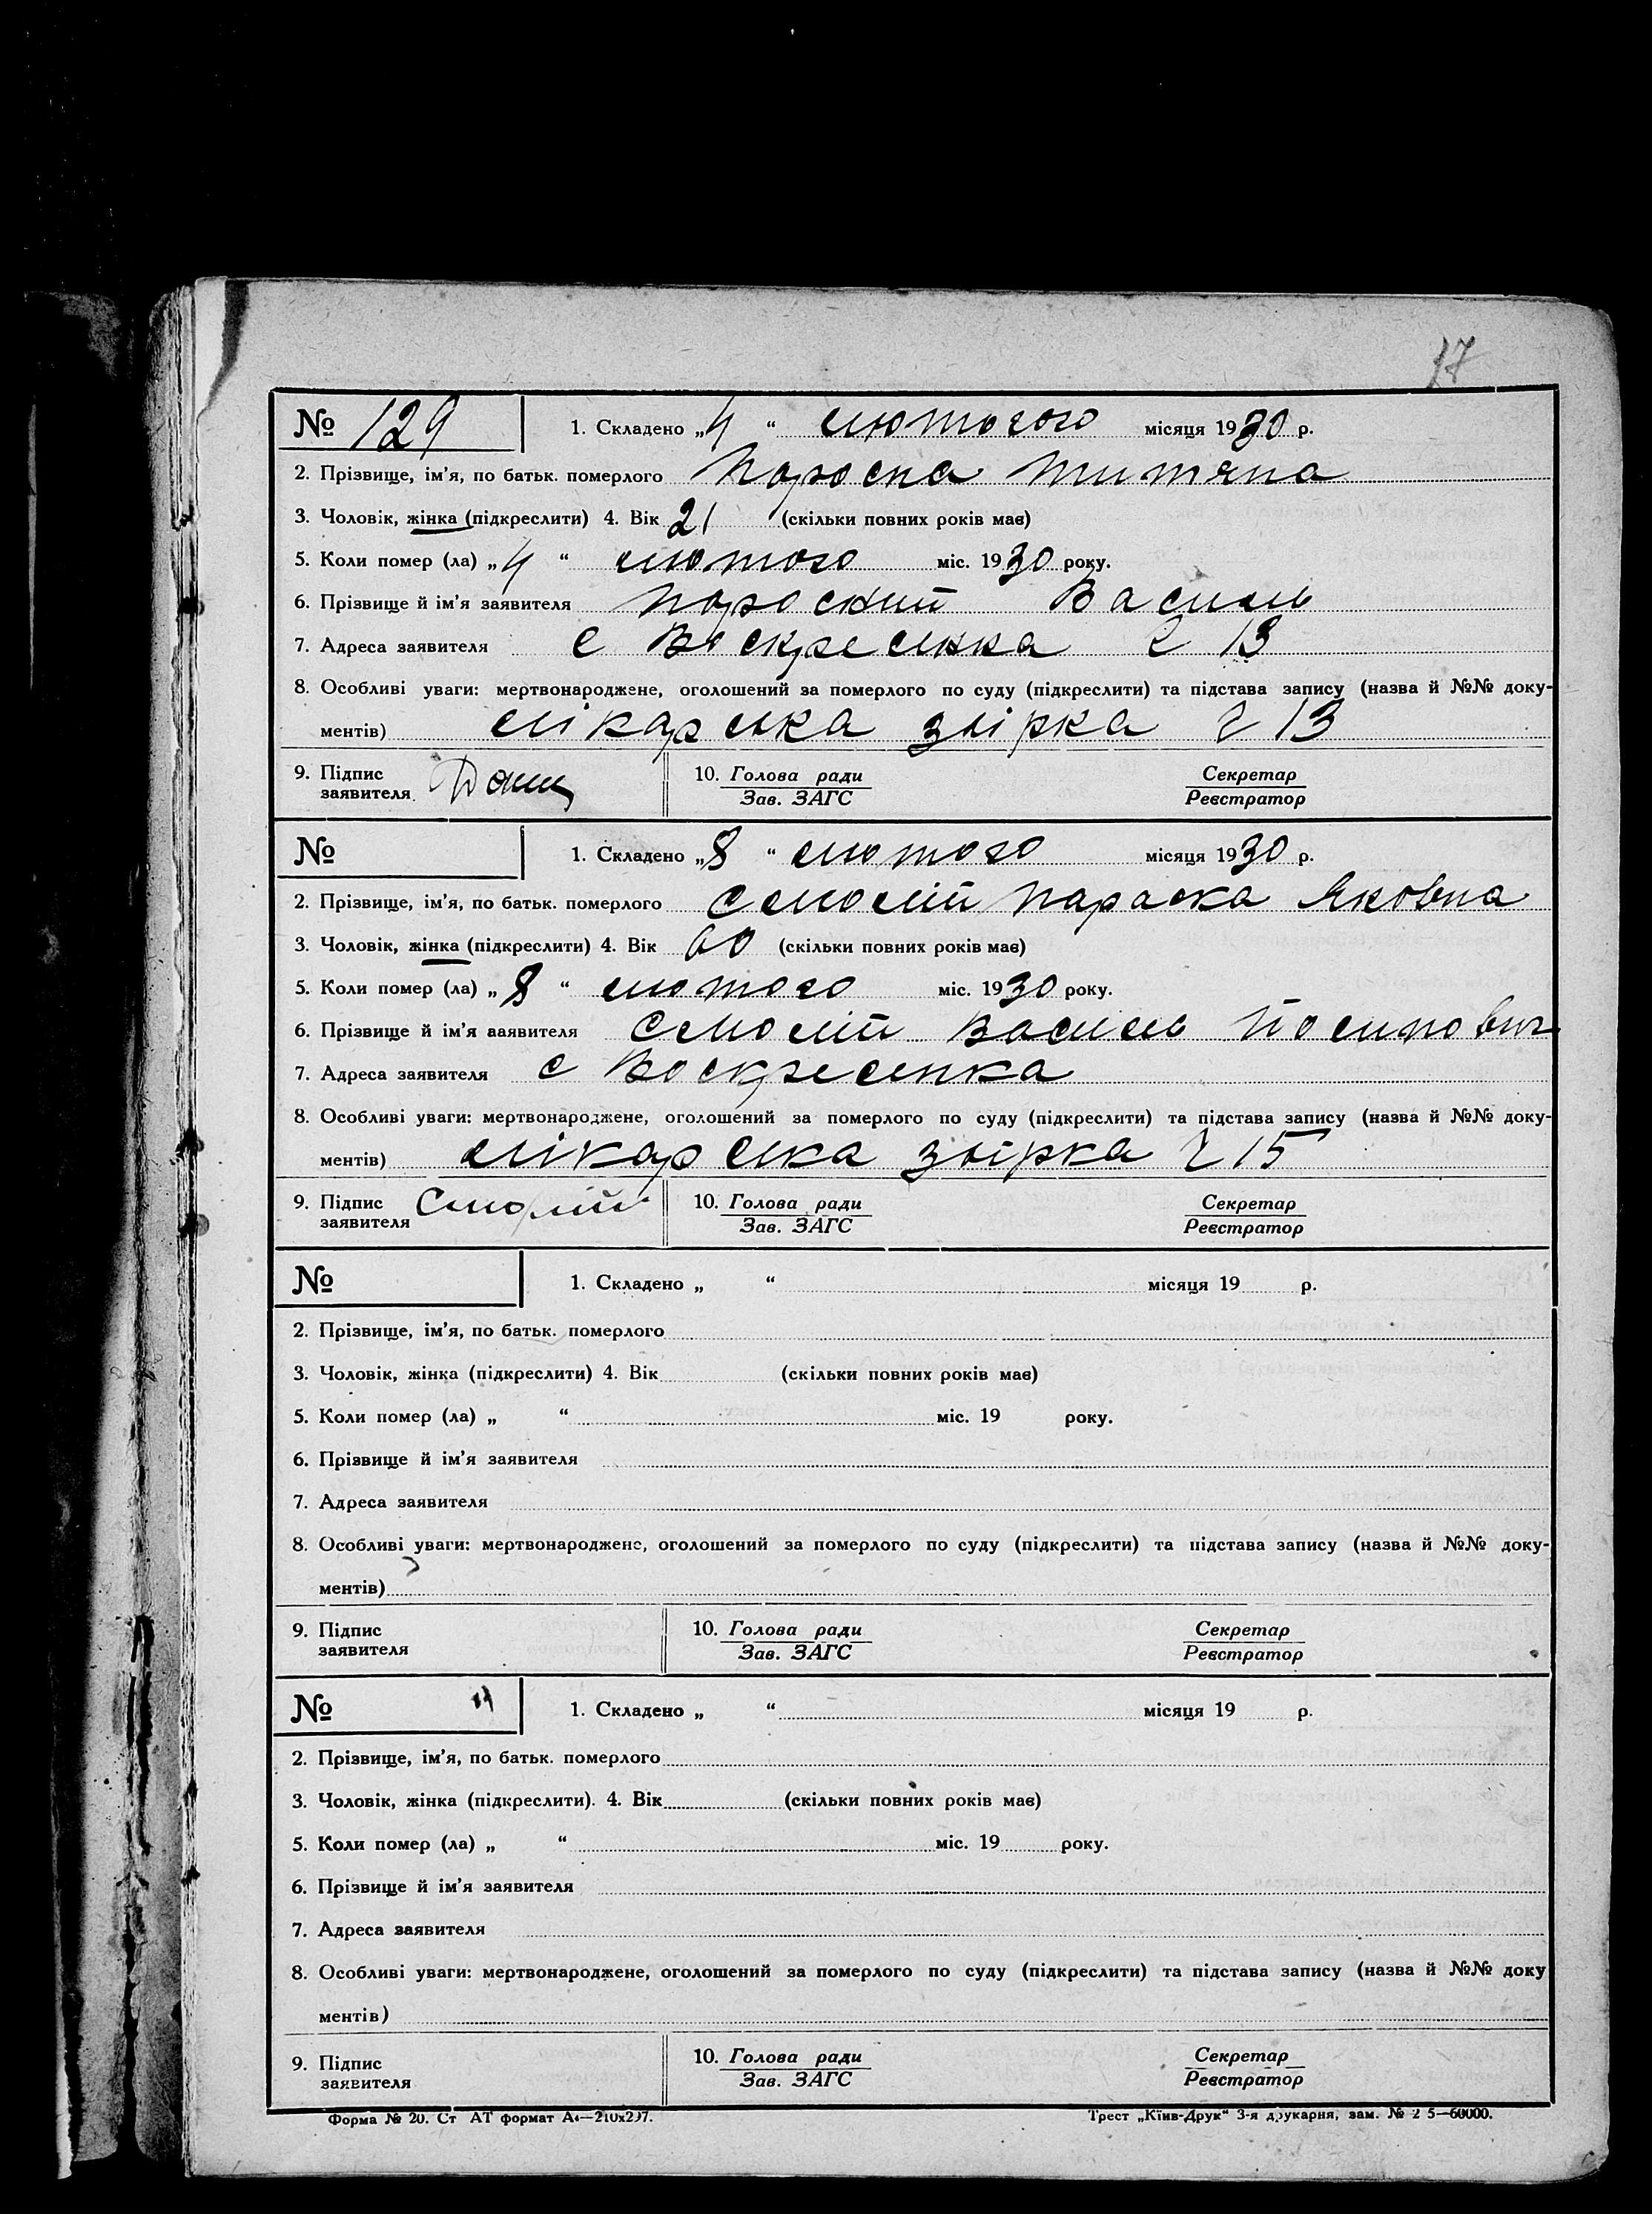 17
№ 129 1. Складено „4“ лютогого місяця 1930 р.
2. Прізвище, ім'я, по батьк. померлого
3. Чоловік, жінка (підкреслити) 4. Вік 21 (скільки повних років має)
5. Коли помер (ла) „4“ лютого міс. 1930 року.
6. Прізвище й ім'я заявителя Василь
7. Адреса заявителя с Воскресенка 13
8. Особливі уваги: мертвонароджене, оголошений за померлого по суду (підкреслити) та підстава запису (назва й №№ доку-
ментів) лікарська звірка ч 13
9. Підпис заявителя 10. Голова ради Зав. ЗАГС Секретар Реєстратор
№ 1. Складено „8“ лютого місяця 1930 р.
2. Прізвище, ім'я, по батьк. померлого Смолій Параска Яковна
3. Чоловік, жінка (підкреслити) 4. Вік 60 (скільки повних років має)
5. Коли помер (ла) „8“ лютого міс. 1930 року.
6. Прізвище й ім'я заявителя Смолій Василь Йосипович
7. Адреса заявителя с Воскресенка
8. Особливі уваги: мертвонароджене, оголошений за померлого по суду (підкреслити) та підстава запису (назва й №№ доку-
ментів) лікарська звірка ч 15
9. Підпис заявителя Смолій 10. Голова ради Зав. ЗАГС Секретар Реєстратор
№ 1. Складено „ “ місяця 19 р.
2. Прізвище, ім'я, по батьк. померлого
3. Чоловік, жінка (підкреслити) 4. Вік (скільки повних років має)
5. Коли помер (ла) „ “ міс. 19 року.
6. Прізвище й ім'я заявителя
7. Адреса заявителя
8. Особливі уваги: мертвонароджене, оголошений за померлого по суду (підкреслити) та підстава запису (назва й №№ доку-
ментів)
9. Підпис заявителя 10. Голова ради Зав. ЗАГС Секретар Реєстратор
№ 1. Складено „ “ місяця 19 р.
2. Прізвище, ім'я, по батьк. померлого
3. Чоловік, жінка (підкреслити). 4. Вік (скільки повних років має)
5. Коли помер (ла) „ “ міс. 19 року.
6. Прізвище й ім'я заявителя
7. Адреса заявителя
8. Особливі уваги: мертвонароджене, оголошений за померлого по суду (підкреслити) та підстава запису (назва й №№ доку
ментів)
9. Підпис заявителя 10. Голова ради Зав. ЗАГС Секретар Реєстратор
Форма № 20. Ст АТ формат А4—210х297. Трест „Київ-Друк“ 3-я друкарня, зам. № 2 5—60000.